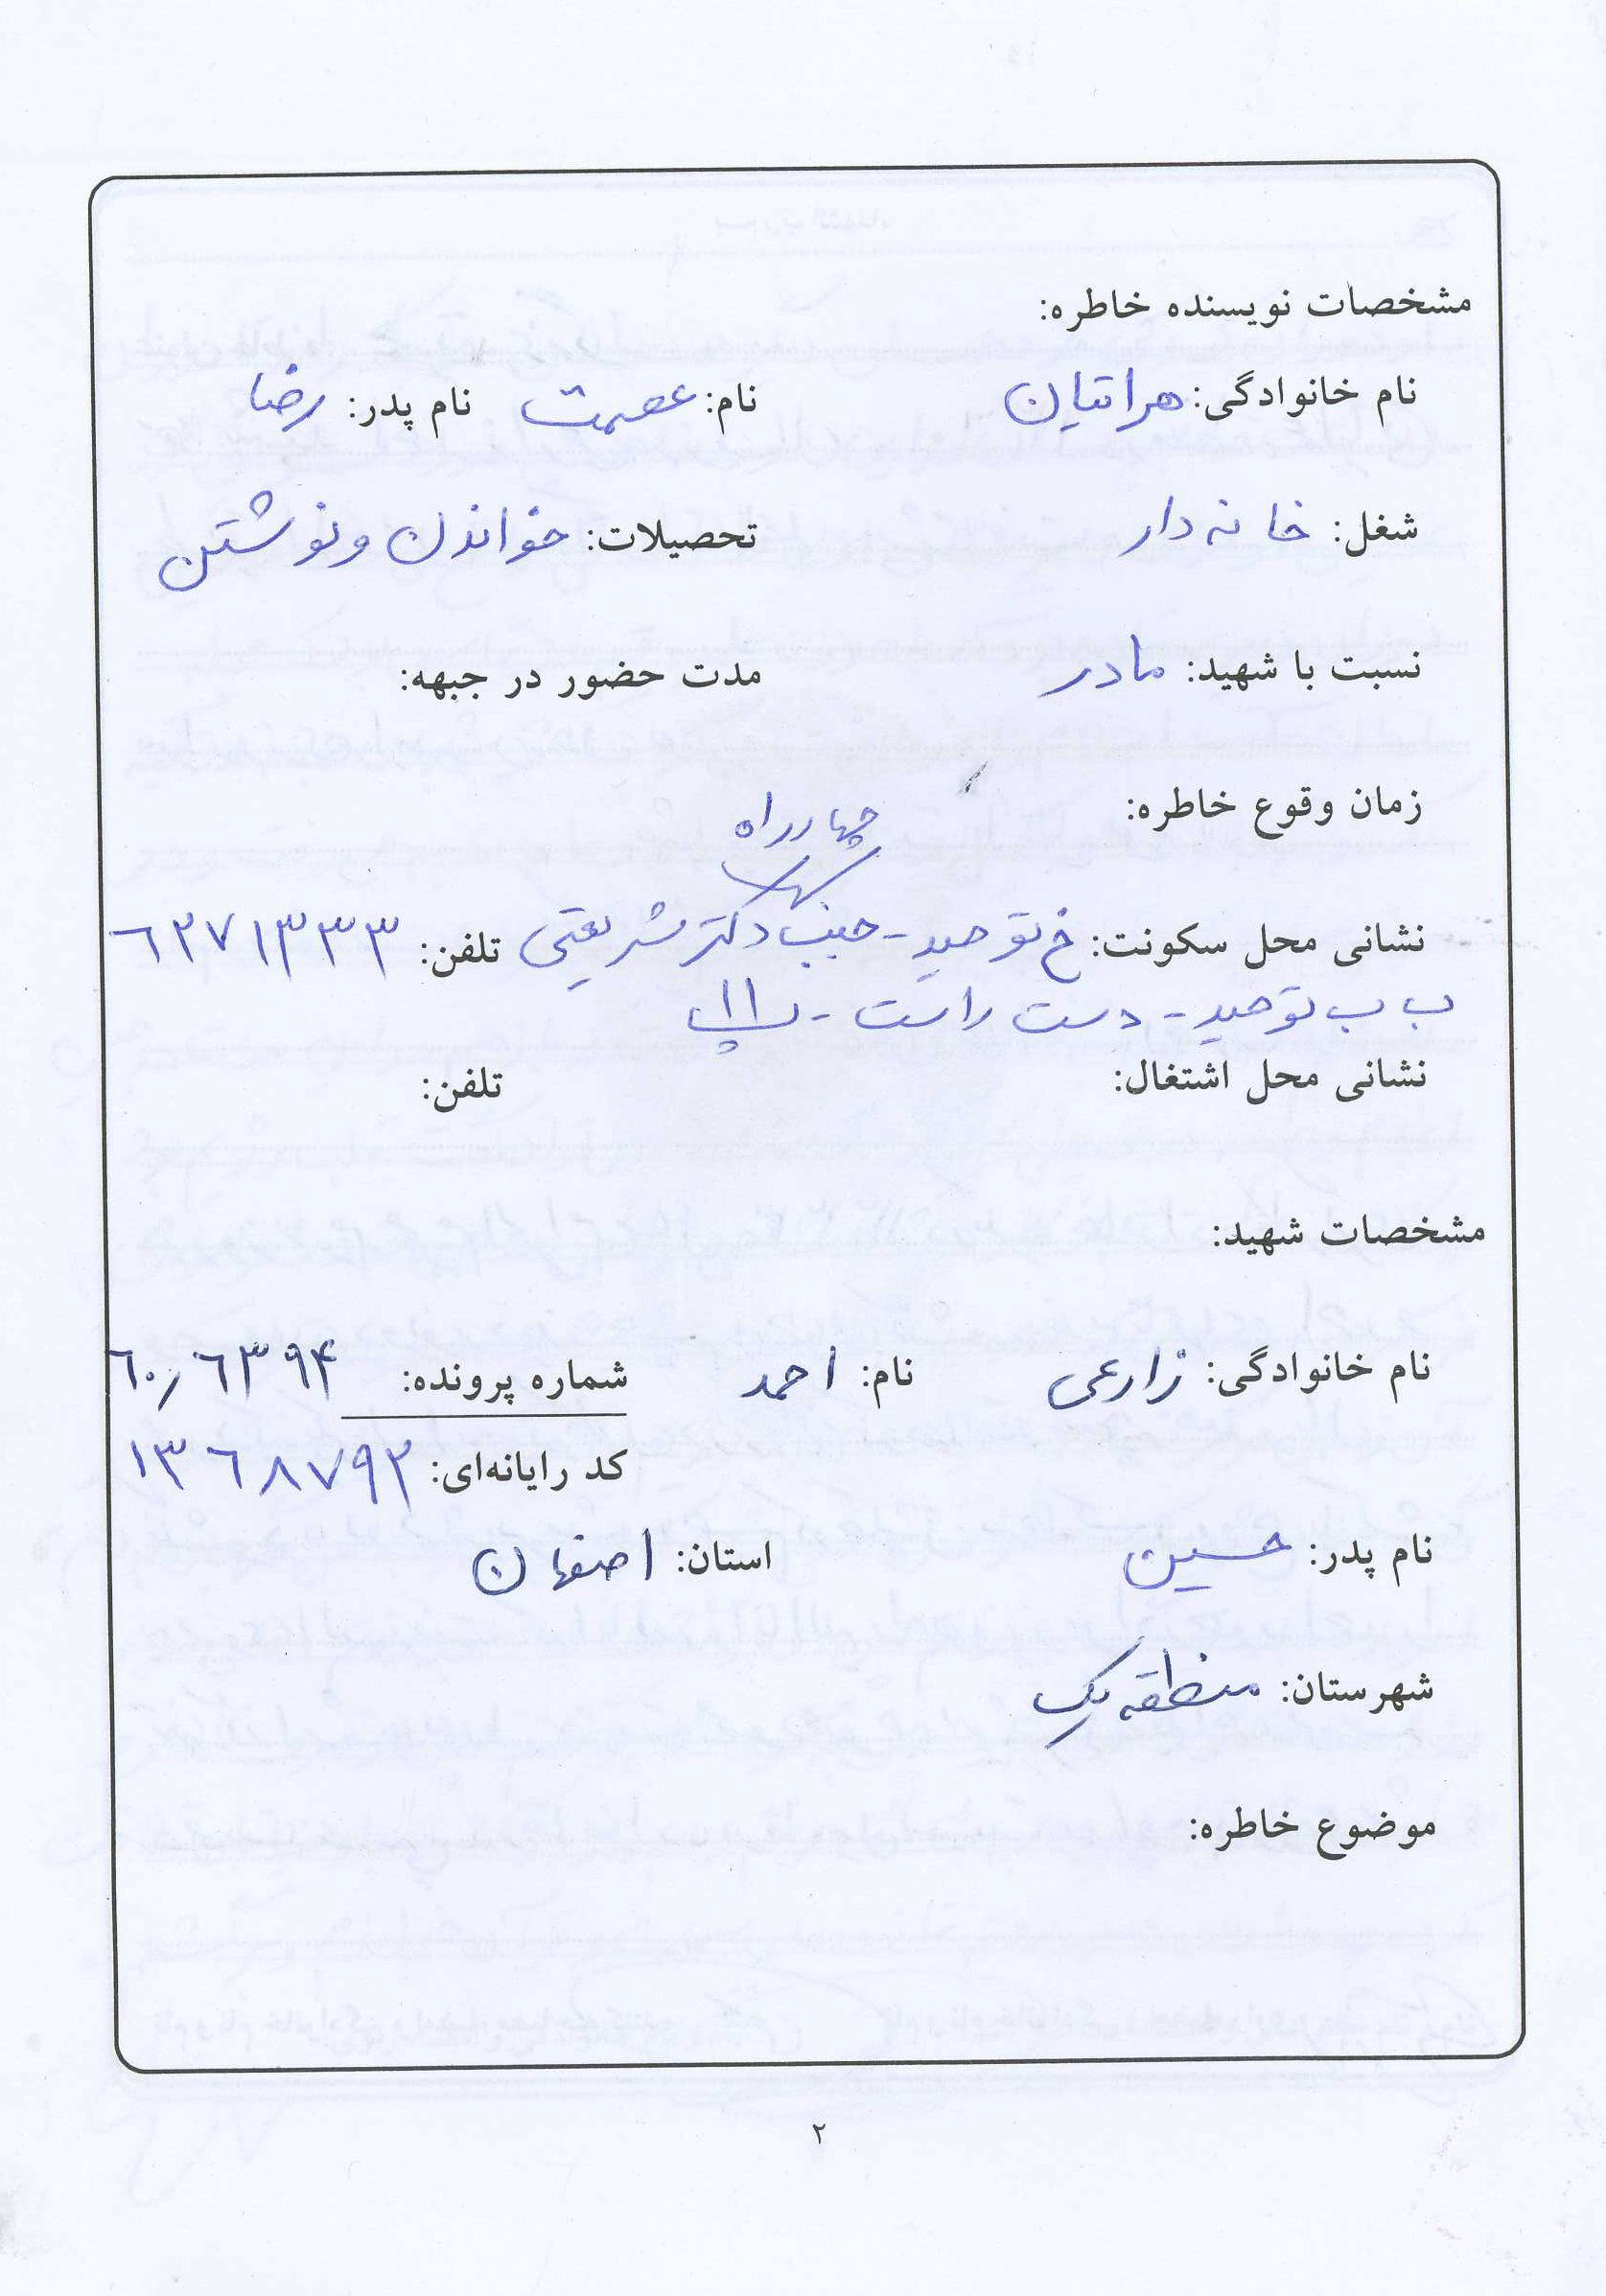 مشخصات نویسنده خاطره:
نام خانوادگی: هراتیان نام: عصمت نام پدر: رضا
شغل: خانه دار تحصیلات: خواندن و نوشتن
نسبت با شهید: مادر مدت حضور در جبهه:
زمان وقوع خاطره:
چهارراه
نشانی محل سکونت: خ توحید - جنب دکتر شریعتی تلفن: ۶۲۷۱۳۳۳
ب ب توحید - دست راست - پ ۱۱
نشانی محل اشتغال: تلفن:
مشخصات شهید:
نام خانوادگی: زارعی نام: احمد شماره پرونده: ۶۰/۶۳۹۴
کد رایانه‌ای: ۱۳۶۸۷۹۲
نام پدر: حسین استان: اصفهان
شهرستان: منطقه یک
موضوع خاطره:
۲